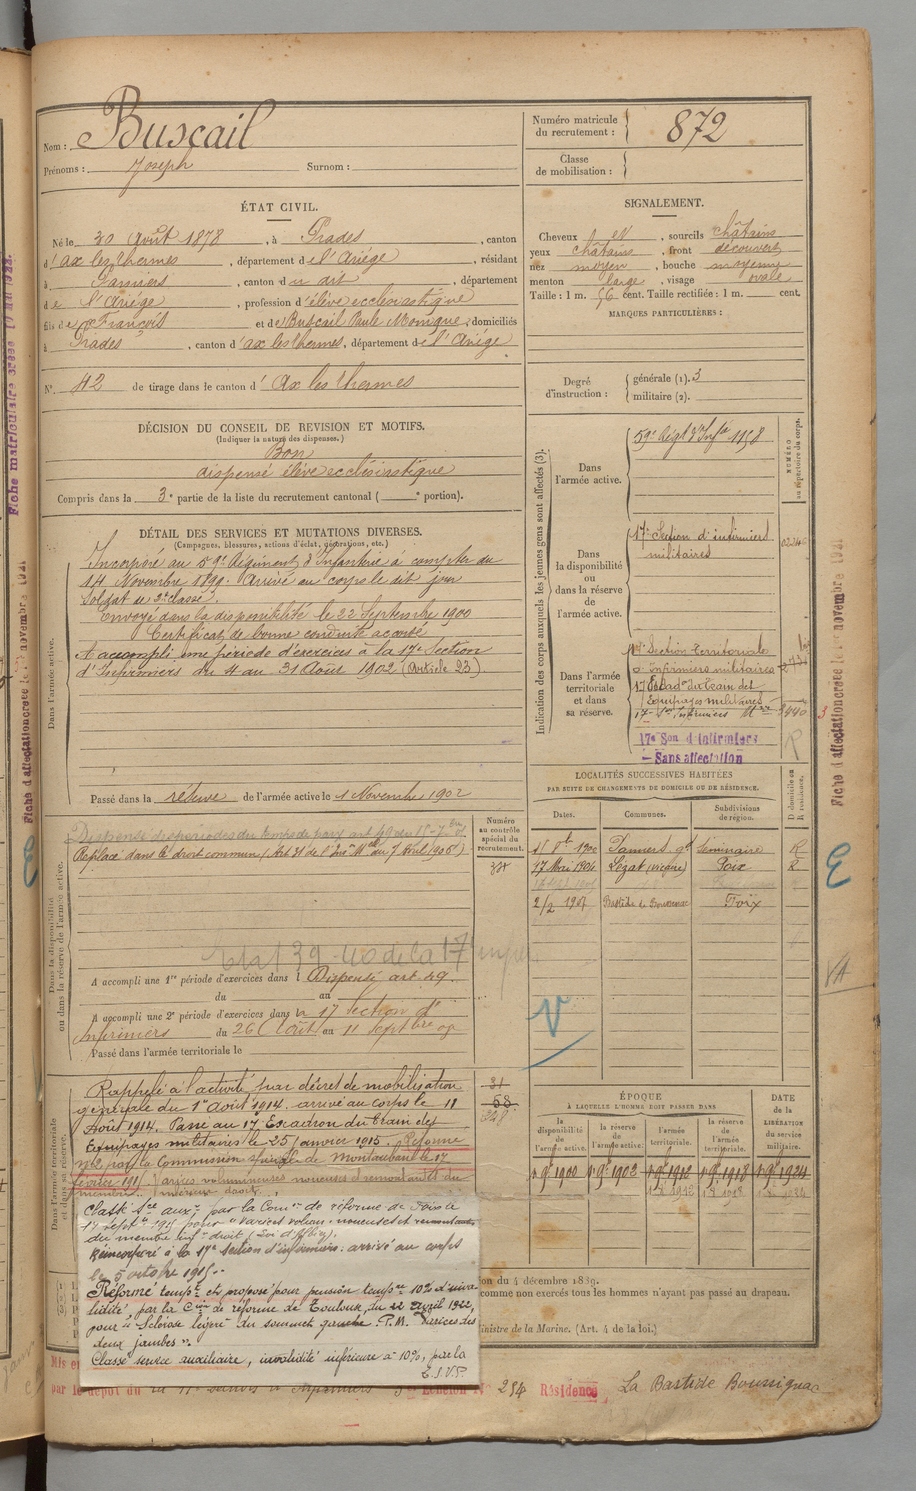 Nom : Buscail
Prénoms : Joseph Surnom :
Numéro matricule
du recrutement : 872
Classe
de mobilisation :
ÉTAT CIVIL.
Né le 30 Août 1878, à Prades, canton
d'ax les thermes, département de l'Ariége, résidant
à Pamiers, canton du dit, département
de l'Ariége, profession d'élève ecclésiastique
fils de François et de Buscail Paule Monique, domiciliés
à Prades, canton d'ax les thermes, département de l'Ariége
N° 42 de tirage dans le canton d'Ax les thermes
SIGNALEMENT.
Cheveux , sourcils châtains
yeux châtains, front découvert
nez moyen, bouche moyenne
menton large, visage ovale
Taille : 1 m. 56 cent. Taille rectifiée : 1 m. cent.
MARQUES PARTICULIÈRES :
Degré
d'instruction :
générale (1). 3
militaire (2).
DÉCISION DU CONSEIL DE REVISION ET MOTIFS.
(Indiquer la nature des dispenses.)
Bon
dispensé élève ecclésiastique
Compris dans la 3e partie de la liste du recrutement cantonal ( e portion).
DÉTAIL DES SERVICES ET MUTATIONS DIVERSES.
(Campagnes, blessures, actions d'éclat, décorations, etc.)
Dans l'armée active.
Incorporé au 59e Régiment d'Infanterie à compter du
14 Novembre 1899. Arrivé au corps le dit jour
Soldat de 2e classe.
Envoyé dans la disponibilité le 22 Septembre 1900
Certificat de bonne conduite accordé
A accompli une période d'exercices à la 17e Section
d'Infirmiers du 4 au 31 Août 1902 (Article 23)
Passé dans la réserve de l'armée active le 1 Novembre 1902
Indication des corps auxquels les jeunes gens sont affectés (3).
NUMÉRO
au répertoire du corps.
Dans
l'armée active.
59e Régt d'Infie 1158
Dans
la disponibilité
ou
dans la réserve
de
l'armée active.
17e Section d'infirmiers
militaires
Dans l'armée
territoriale
et dans
sa réserve.
Section Territoriale
d'infirmiers militaires
17 Escadon du Train des
Equipages militaires
17e Son Infirmiers Mres 3440
17e Son d'Infirmiers
– Sans affectation
Dans la disponibilité
ou dans la réserve de l'armée active.
Numéro
au contrôle
spécial du
recrutement.
Dispensé des périodes du temps de paix art 49
Replacé dans le droit commun (Art 31 de l'Ins Mlle du 7 Avril 1906)
A accompli une 1re période d'exercices dans l Dispensé art. 49.
du au
A accompli une 2e période d'exercices dans la 17 Section d'
Infirmiers du 26 Août au 11 Septbre 08
Passé dans l'armée territoriale le
LOCALITÉS SUCCESSIVES HABITÉES
PAR SUITE DE CHANGEMENTS DE DOMICILE OU DE RÉSIDENCE.
Dates. Communes. Subdivisions de région. D domicile ou R résidence.
1900 Pamiers gd Séminaire R
17 Mai 1904 Lezat (vicaire) Foix R
2/2 1907 Bastide de Bousignac Foix
V
E
VA
Dans l'armée territoriale
et dans sa réserve.
Rappelé à l'activité par décret de mobilisation
générale du 1er Août 1914. arrivé au corps le 11
Août 1914. Passé au 17e Escadron du Train des
Equipages militaires le 25 Janvier 1915. Réformé
n°2 par la Commission spéciale de Montauban le 17
31
58
ÉPOQUE
À LAQUELLE L'HOMME DOIT PASSER DANS
la disponibilité de l'armée active.
la réserve de l'armée active.
l'armée territoriale.
la réserve de l'armée territoriale.
DATE
de la
LIBÉRATION
du service
militaire.
1900 1902 1912 1918 1924
Classé Sce auxre par la Comon de réforme de Foix le
17 Septre 1915 pour "varices volum. noueuses et remontantes
du membre inf. droit
Réincorporé à la 17e Section d'infirmiers : arrivé au corps
le 5 octobre 1915.
Réformé tempre et proposé pour pension tempre 10% d'inva-
lidité, par la Con de réforme de Toulouse, du 22 Avril 1922,
pour "Sclérose légère du sommet gauche. P.M. Varices des
deux jambes".
Classé service auxiliaire, invalidité inférieure à 10%, par la
T.S.V.P.
du 4 décembre 1889.
comme non exercés tous les hommes n'ayant pas passé au drapeau.
inistre de la Marine. (Art. 4 de la loi.)
par le dépôt du Echelon N° 254 Résidence La Bastide Boussignac
Fiche d'affectation créée le 1er novembre 1921
Fiche matriculaire créée 17 mai 1922.